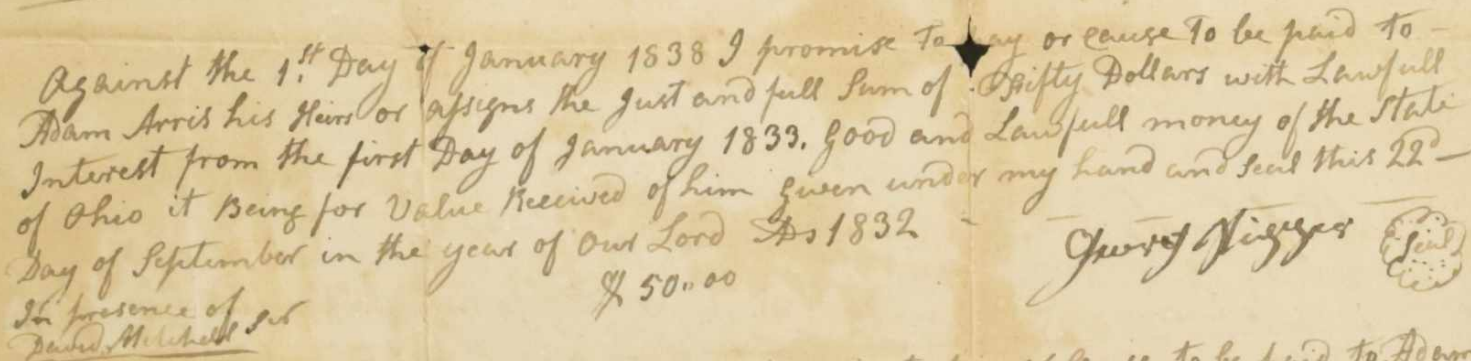 Against the 1.st Day of January 1838 I promise To ay or cause To be paid to -
Adam Arris his Heirs or assigns the Just and full Sum of Fifty Dollars with Lawfull
Interest from the first Day of January 1833. Good and Lawfull money of the State
of Ohio it Being for Value Received of him Given under my hand and Seal this 22d -
Day of September in the year of Our Lord AD 1832
George Seal
$ 50.00
In presence of
David Mitchell Snr
cause to be paid to Adam